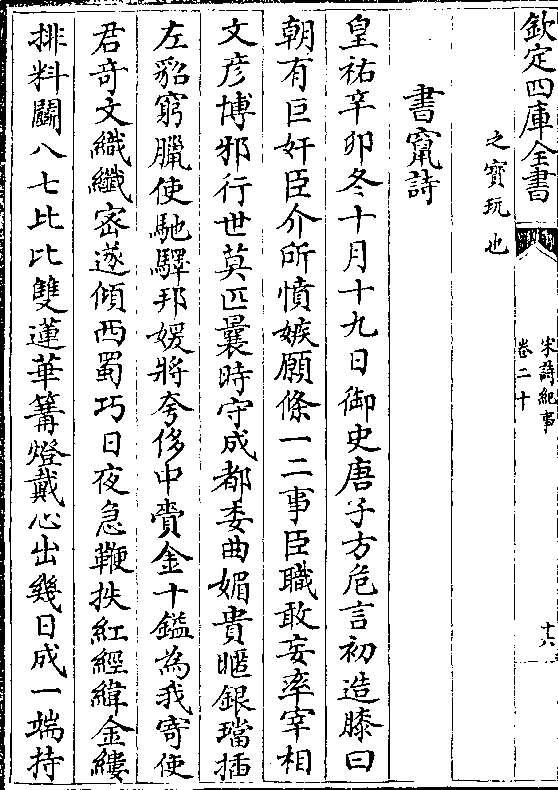 欽定四庫全書
宋詩紀事
卷二十
十六
之寳玩也
書竄詩
皇祐辛卯冬十月十九日御史唐子方危言初造膝曰
朝有巨奸臣介所憤嫉願條一二事臣職敢妄率宰相
文彦博邪行世莫匹曩時守成都委曲媚貴暱銀璫插
左貂窮臘使馳驛邦媛將夸侈中賫金十鎰為我寄使
君奇文織纎密遂傾西蜀巧日夜急鞭抶紅經緯金縷
排料鬬八七比比雙蓮華篝燈戴心出幾日成一端持